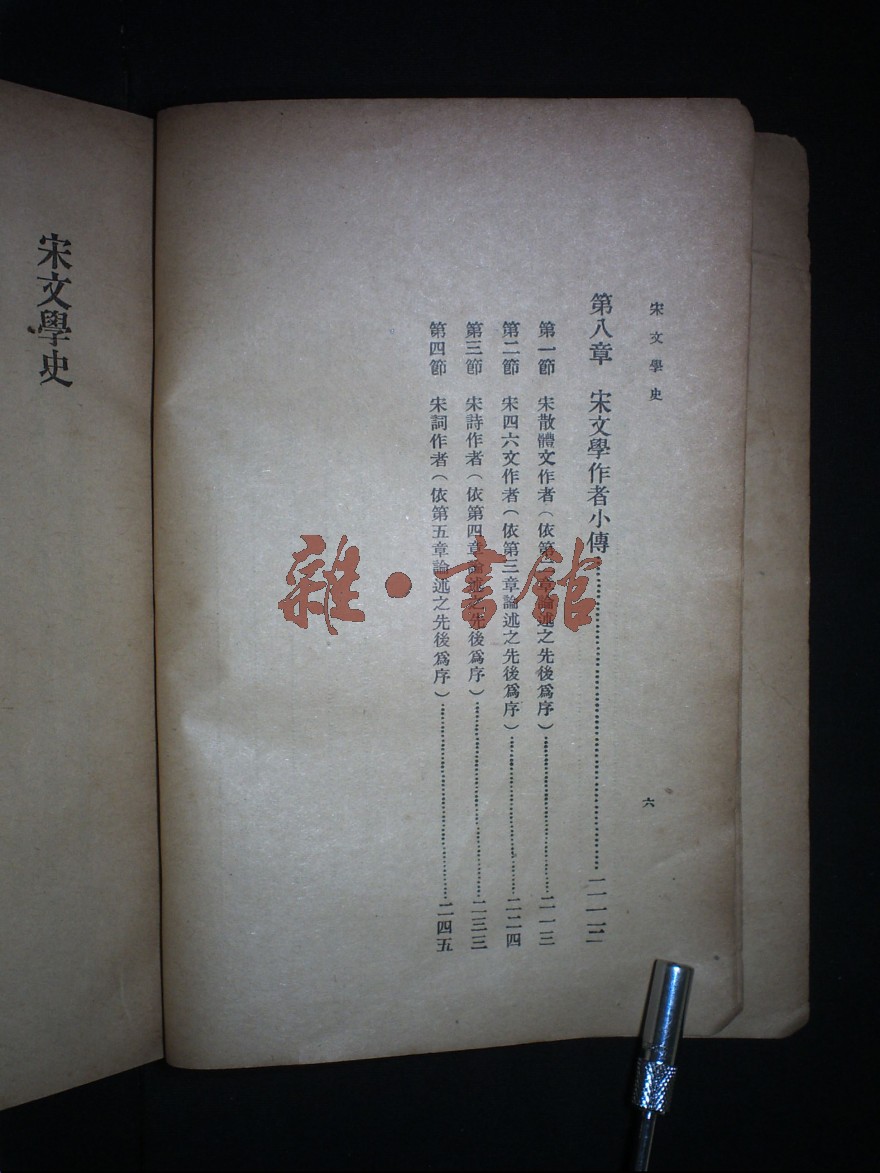 宋文學史 六
第八章 宋文學作者小傳……
第一節 宋散體文作者（依第章論述之先後爲序）……二一三
第二節 宋四六文作者（依第三章論述之先後爲序）……二二四
第三節 宋詩作者（依第四章論述之先後爲序）……二三三
第四節 宋詞作者（依第五章論述之先後爲序）……二四五
宋文學史
雜·書館